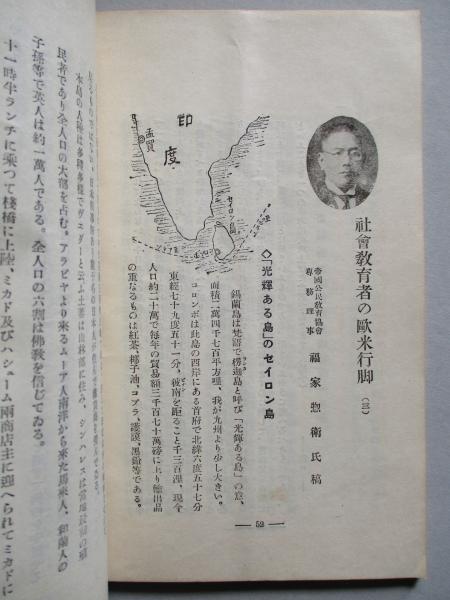 社會敎育者の歐米行脚 (三)
帝國公民敎育協會
專務理事
福家惣衛氏稿
印度
孟買
セイロン島
◇「光輝ある島」のセイロン島
錫蘭島は梵語で楞迦島と呼び「光輝ある島」の意、
面積二萬四千七百平方哩、我が九州より少し大きい。
コロンボは此島の西岸にある首府で北緯六度五十七分
東經七十九度五十一分、彼南を距ること千三百浬、現今
人口約二十萬で每年の貿易額三千百七十萬磅に上り輸出品
の重なるものは紅茶、椰子油、コプラ、護謨、黑鉛等である。
— 52 —
本島の人種は多種多樣でヴェダーと云ふ土蕃は山林部に住み、シンハレスは當地最初の殖
民者であり全人口の大部を占む。アラビヤより來るムーア人南洋から來た馬來人、和蘭人の
子孫等で英人は約一萬人である。全人口の六割は佛敎を信じてゐる。
十一時半ランチに乘つて棧橋に上陸、ミカド及びハシューム兩商店主に迎へられてミカドに